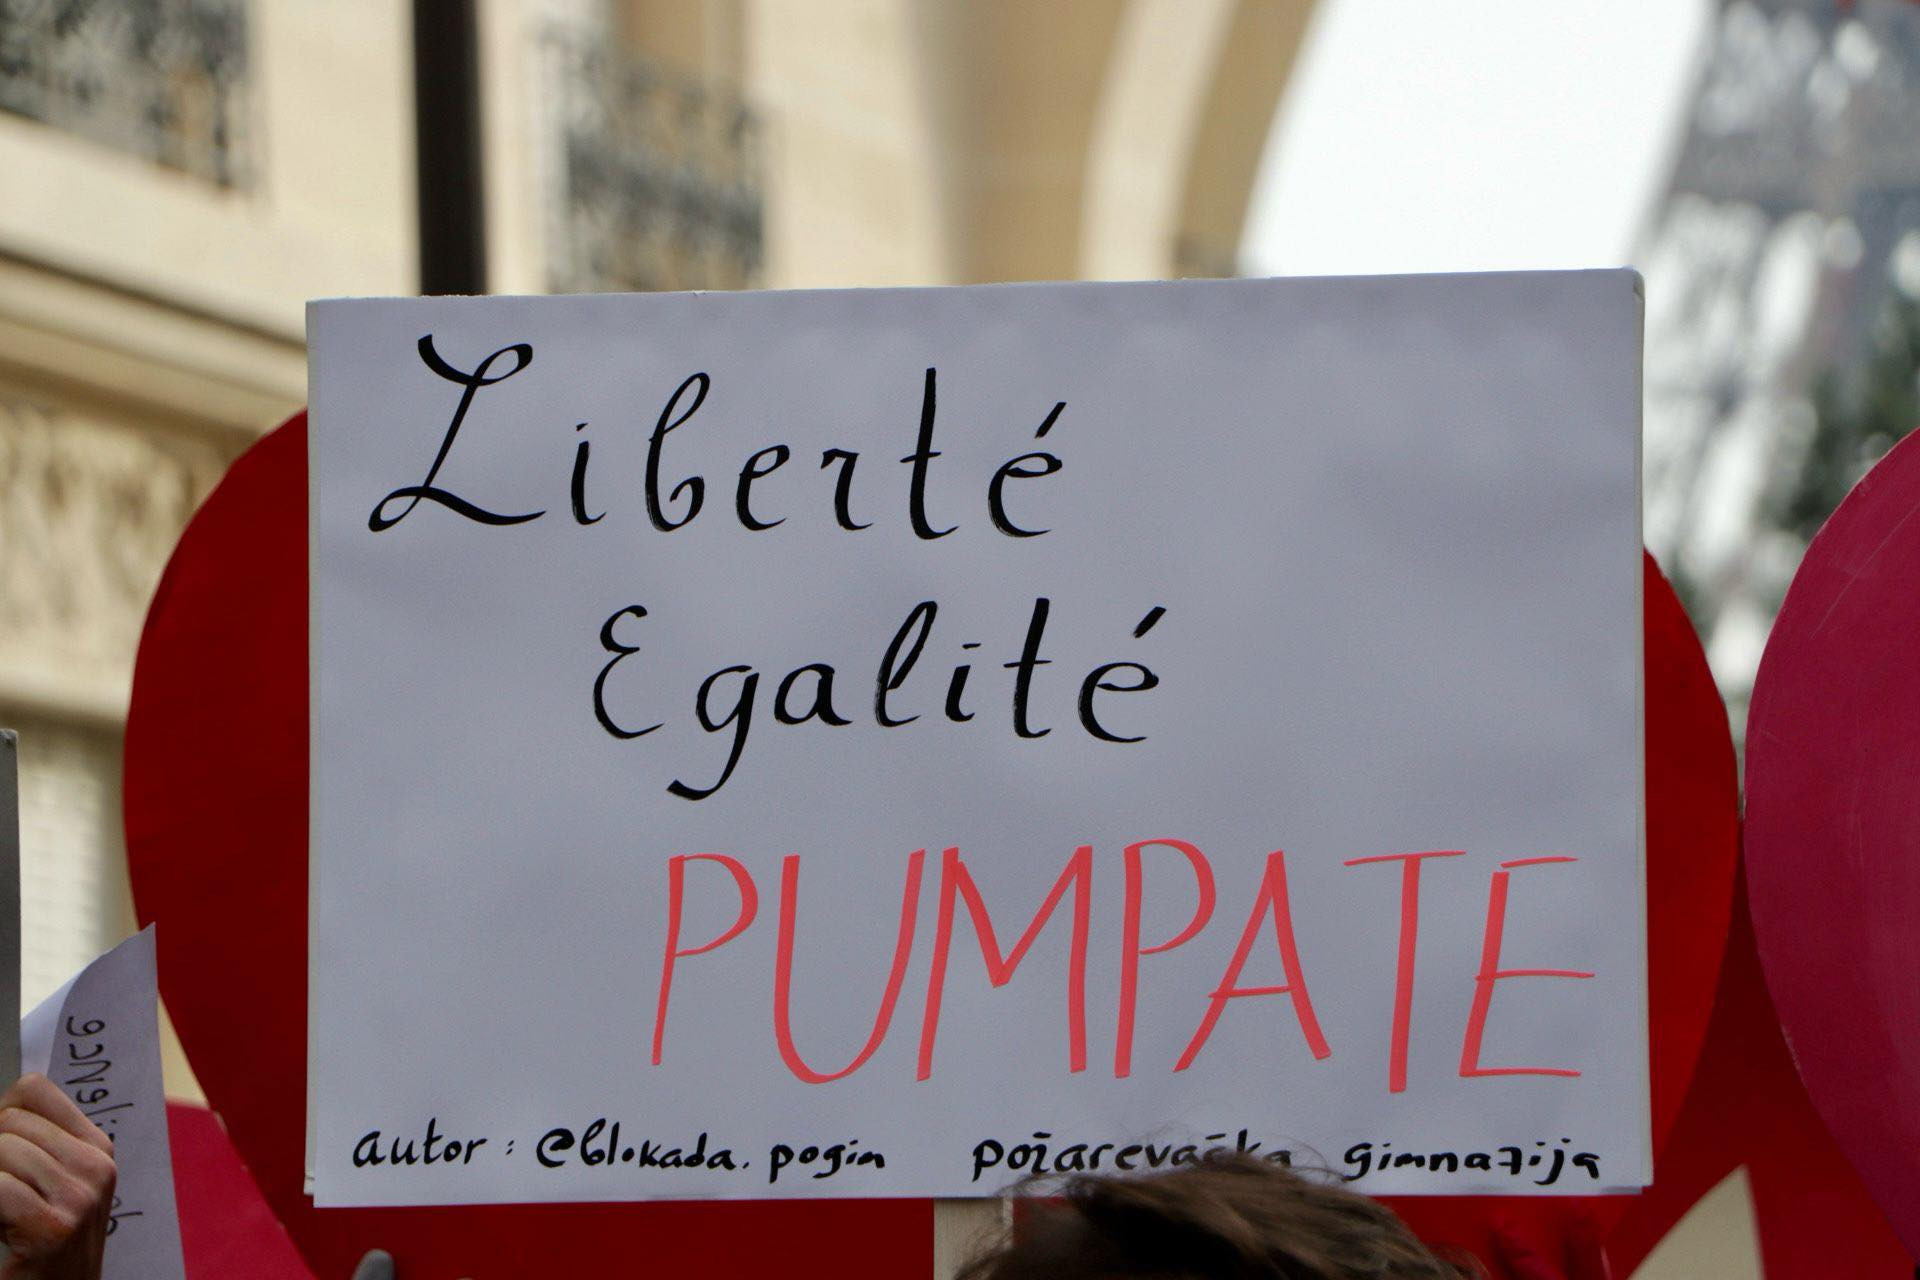 Liberté
Egalité
PUMPATE
autor: @blokada.pogim požarevačka gimnazija